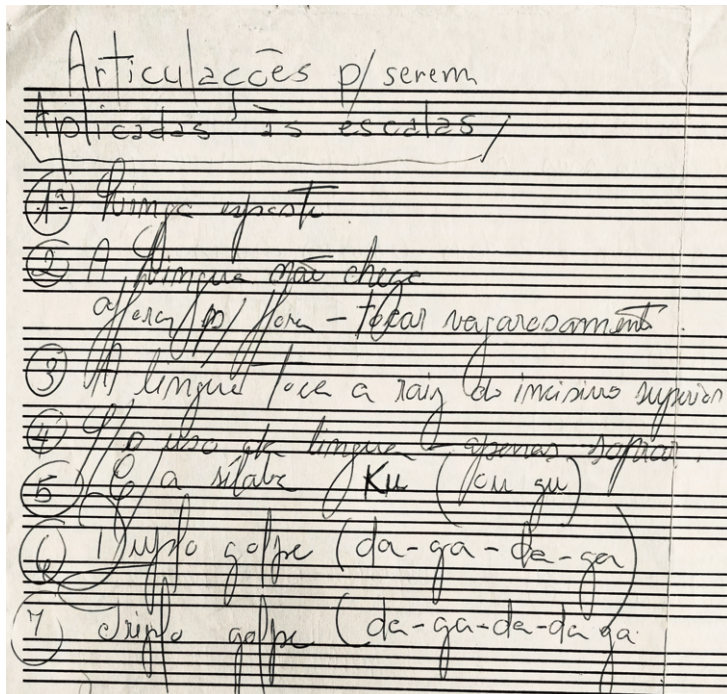 Articulacções p/ serem
Aplicadas às escalas
1ª Língua
2 A língua não chega
p/ fora - tocar vagarosamente.
3 A lingua toca a raiz do incisivo superior
4 S/ o uso da lingua - apenas soprar.
5 C/ a sílaba Ku (ku gu)
6 Duplo golpe (da-ga-da-ga)
7 Triplo golpe (da-ga-da-da ga